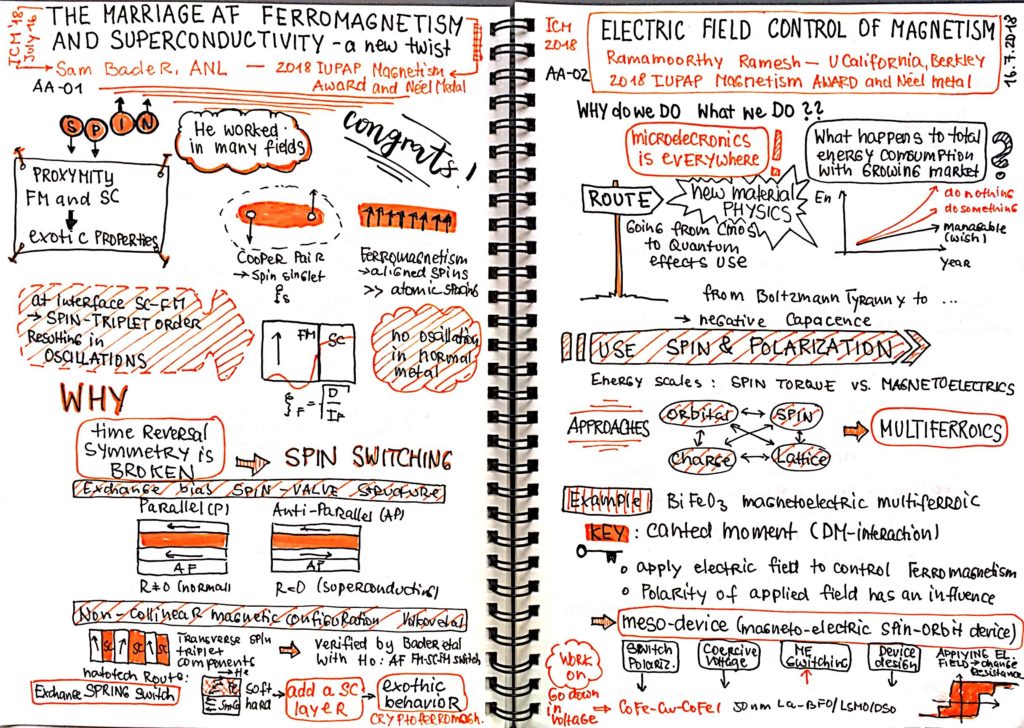 ICM '18
July·16
THE MARRIAGE AF FERROMAGNETISM
AND SUPERCONDUCTIVITY - a new twist
Sam Bader, ANL — 2018 IUPAP Magnetism
AWARD and Néel Medal
AA-01
SPIN
He worked
in many fields
congrats!
PROXYMITY
FM and SC
exotic PROPERTIES
COOPER PAIR
→ Spin singlet
ξs
Ferromagnetism
→ aligned spins
>> atomic spacing
at interface SC-FM
→ SPIN-TRIPLET ORDER
Resulting in
OSCILLATIONS
FM SC
ξF = √D/IF
no oscillation
in normal
metal
WHY
time REVERSAL
Symmetry is
BROKEN
SPIN SWITCHING
Exchange bias SPIN-VALVE STRUCTURE
Parallel (P)
Anti-Parallel (AP)
AF
AF
R≠0 (normal)
R=0 (superconducting)
Non-Collinear magnetic configuration Volkov et al
SC SC SC
Transverse spin
triplet
components
verified by Bader et al
with Ho: AF FM-SC-FM switch
nanotech Route:
Exchange SPRING switch
→ H
Fe
SmCo
Soft
hard
add a SC
layer
exothic
behavior
CRYPTOFERROMAGN.
ICM
2018
AA-02
ELECTRIC FIELD CONTROL OF MAGNETISM
Ramamoorthy Ramesh — U California, Berkley
2018 IUPAP Magnetism AWARD and Néel metal
16.7.2018
WHY do we DO What we DO ??
microelecronics
is everywhere !
What happens to total
energy comsumption
with growing market
?
ROUTE
new material
PHYSICS
Going from CMOS
to Quantum
effects use
En
do nothing
do something
Manageable
(wish)
year
from Boltzmann Tyranny to ...
→ negative Capacence
USE SPIN & POLARIZATION
Energy scales: SPIN TORQUE VS. MAGNETOELECTRICS
APPROACHES
Orbital
SPIN
Charge
Lattice
MULTIFERROICS
Example
BiFeO3 magnetoelectric multiferroic
KEY: canted moment (DM-interaction)
apply electric field to control Ferromagnetism
Polarity of applied field has an influence
meso-device (magneto-electric spin-orbit device)
WORK
on
Go down
in
voltage
Switch
Polariz.
Coercive
Voltage
ME
Switching
Device
design
APPLYING EL.
FIELD → change
Resistance
→ CoFe-Cu-CoFe| 50nm La-BFO/LSMO/DSO